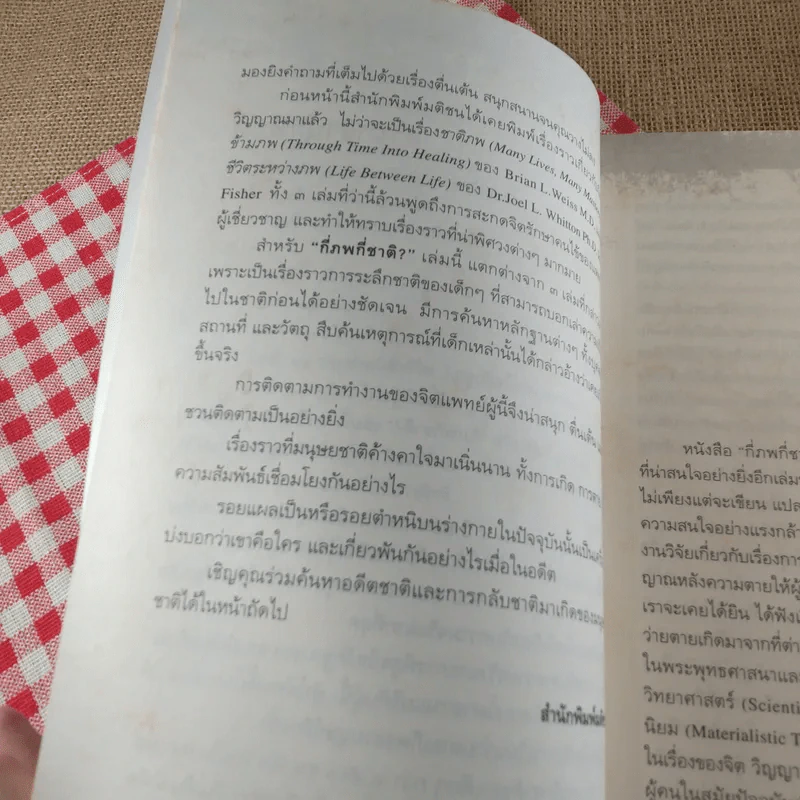 มองยิงคำถามที่เต็มไปด้วยเรื่องตื่นเต้น สนุกสนานจนคุณวางไม่ลง
ก่อนหน้านี้สำนักพิมพ์มติชนได้เคยพิมพ์เรื่องราวเกี่ยวกับ
วิญญาณมาแล้ว ไม่ว่าจะเป็นเรื่องชาติภพ (Many Lives, Many
ข้ามภพ (Through Time Into Healing) ของ Brian L.Weiss M.D.
ชีวิตระหว่างภพ (Life Between Life) ของ Dr.Joel L. Whitton Ph.D.
Fisher ทั้ง ๓ เล่มที่ว่านี้ล้วนพูดถึงการสะกดจิตรักษาคนไข้ของ
ผู้เชี่ยวชาญ และทำให้ทราบเรื่องราวที่น่าพิศวงต่างๆ มากมาย
สำหรับ “กี่ภพกี่ชาติ?” เล่มนี้ แตกต่างจาก ๓ เล่มที่
เพราะเป็นเรื่องราวการระลึกชาติของเด็กๆ ที่สามารถบอกเล่า
ไปในชาติก่อนได้อย่างชัดเจน มีการค้นหาหลักฐานต่างๆ
สถานที่ และวัตถุ สืบค้นเหตุการณ์ที่เด็กเหล่านั้นได้กล่าวอ้างว่า
ขึ้นจริง
การติดตามการทำงานของจิตแพทย์ผู้นี้จึงน่าสนุก ตื่นเต้น
ชวนติดตามเป็นอย่างยิ่ง
เรื่องราวที่มนุษยชาติค้างคาใจมาเนิ่นนาน ทั้งการเกิด การ
ความสัมพันธ์เชื่อมโยงกันอย่างไร
รอยแผลเป็นหรือรอยตำหนิบนร่างกายในปัจจุบันนั้นเป็น
บ่งบอกว่าเขาคือใคร และเกี่ยวพันกันอย่างไรเมื่อในอดีต
เชิญคุณร่วมค้นหาอดีตชาติและการกลับชาติมาเกิดของ
ชาติได้ในหน้าถัดไป
สำนักพิมพ์
หนังสือ “กี่ภพกี่ชา
ที่น่าสนใจอย่างยิ่งอีกเล่ม
ไม่เพียงแต่จะเขียน แปล
ความสนใจอย่างแรงกล้า
งานวิจัยเกี่ยวกับเรื่องการ
ญาณหลังความตายให้ผู้
เราจะเคยได้ยิน ได้ฟัง
ว่ายตายเกิดมาจากที่ต่า
ในพระพุทธศาสนาและ
วิทยาศาสตร์ (Scienti
นิยม (Materialistic T
ในเรื่องของจิต วิญญา
ผู้คนในสมัยปัจจุบัน